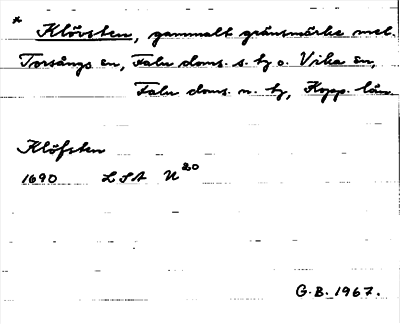 * Klövsten, gammalt gränsmärke mel.
Torsångs sn, Falu doms. s. tg o. Vika sn,
Falu doms. n. tg, Kopp. län.
Klöfsten
1690 LSA U 20
G.B. 1967.